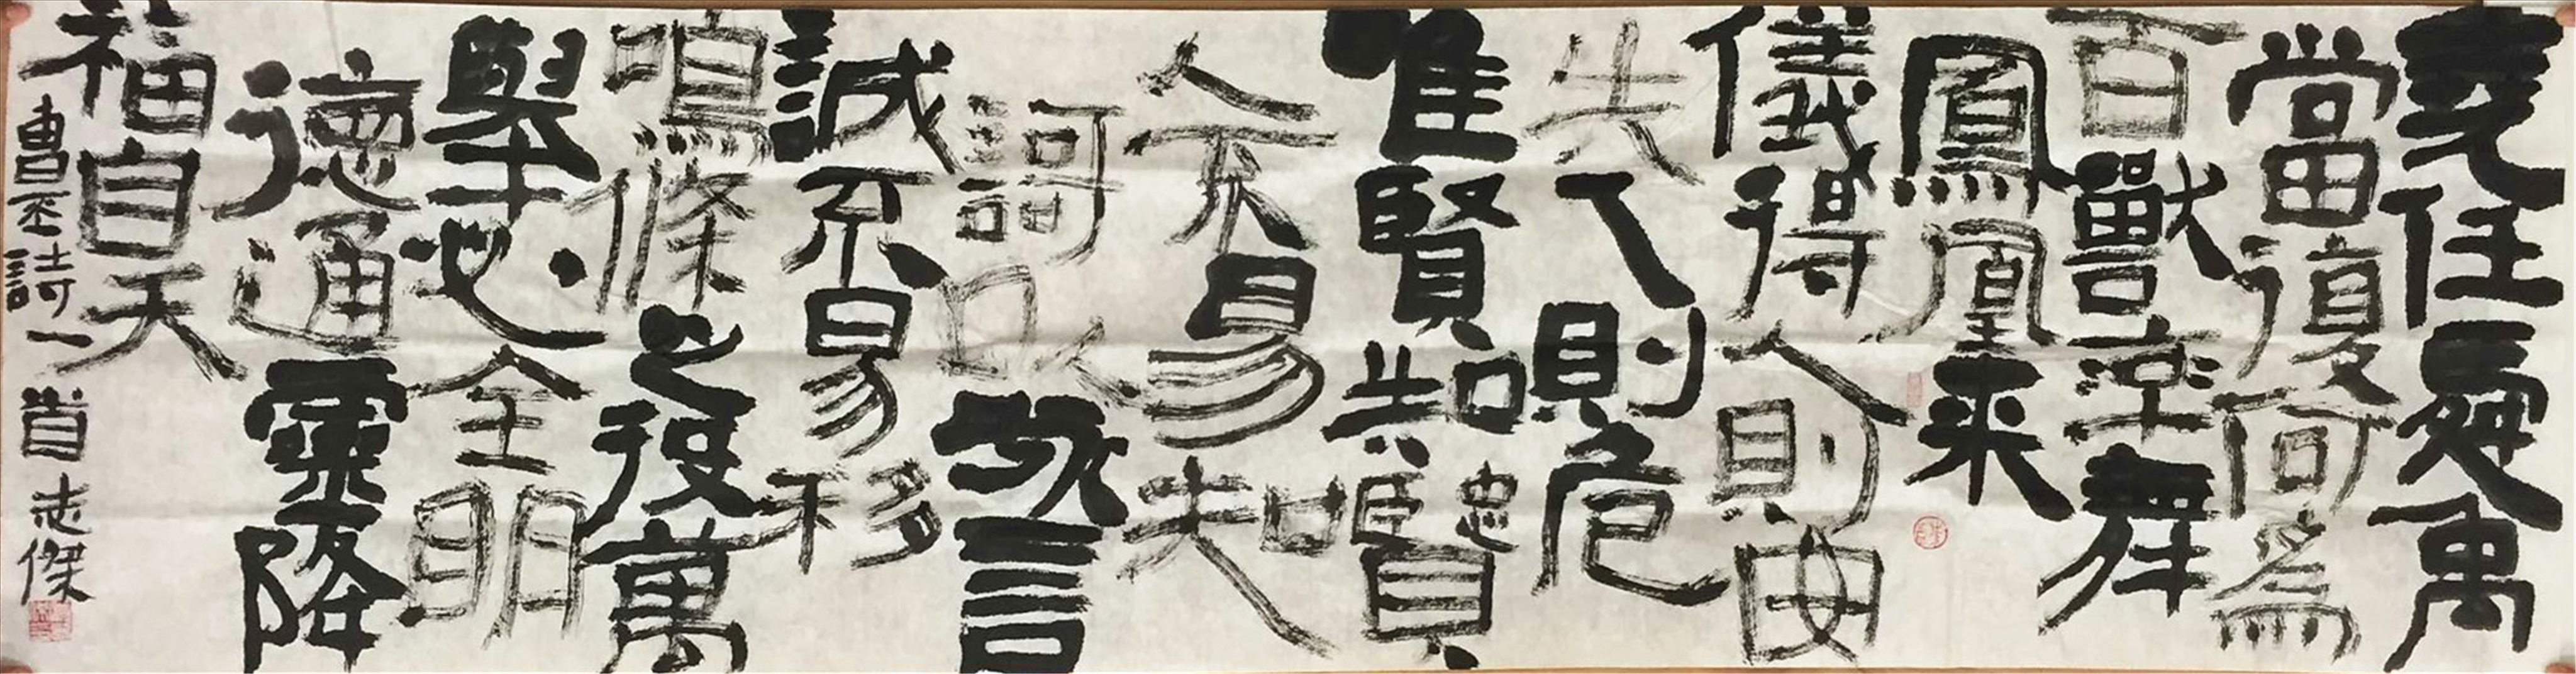 堯任舜禹
當復何為
百獸率舞
鳳凰來
儀得人則安
失人則危
唯賢知賢
人不易知
謌以詠言
誠不易移
鳴條之役萬
舉必全明
德通靈降
福自天
曹丕詩一首 志傑